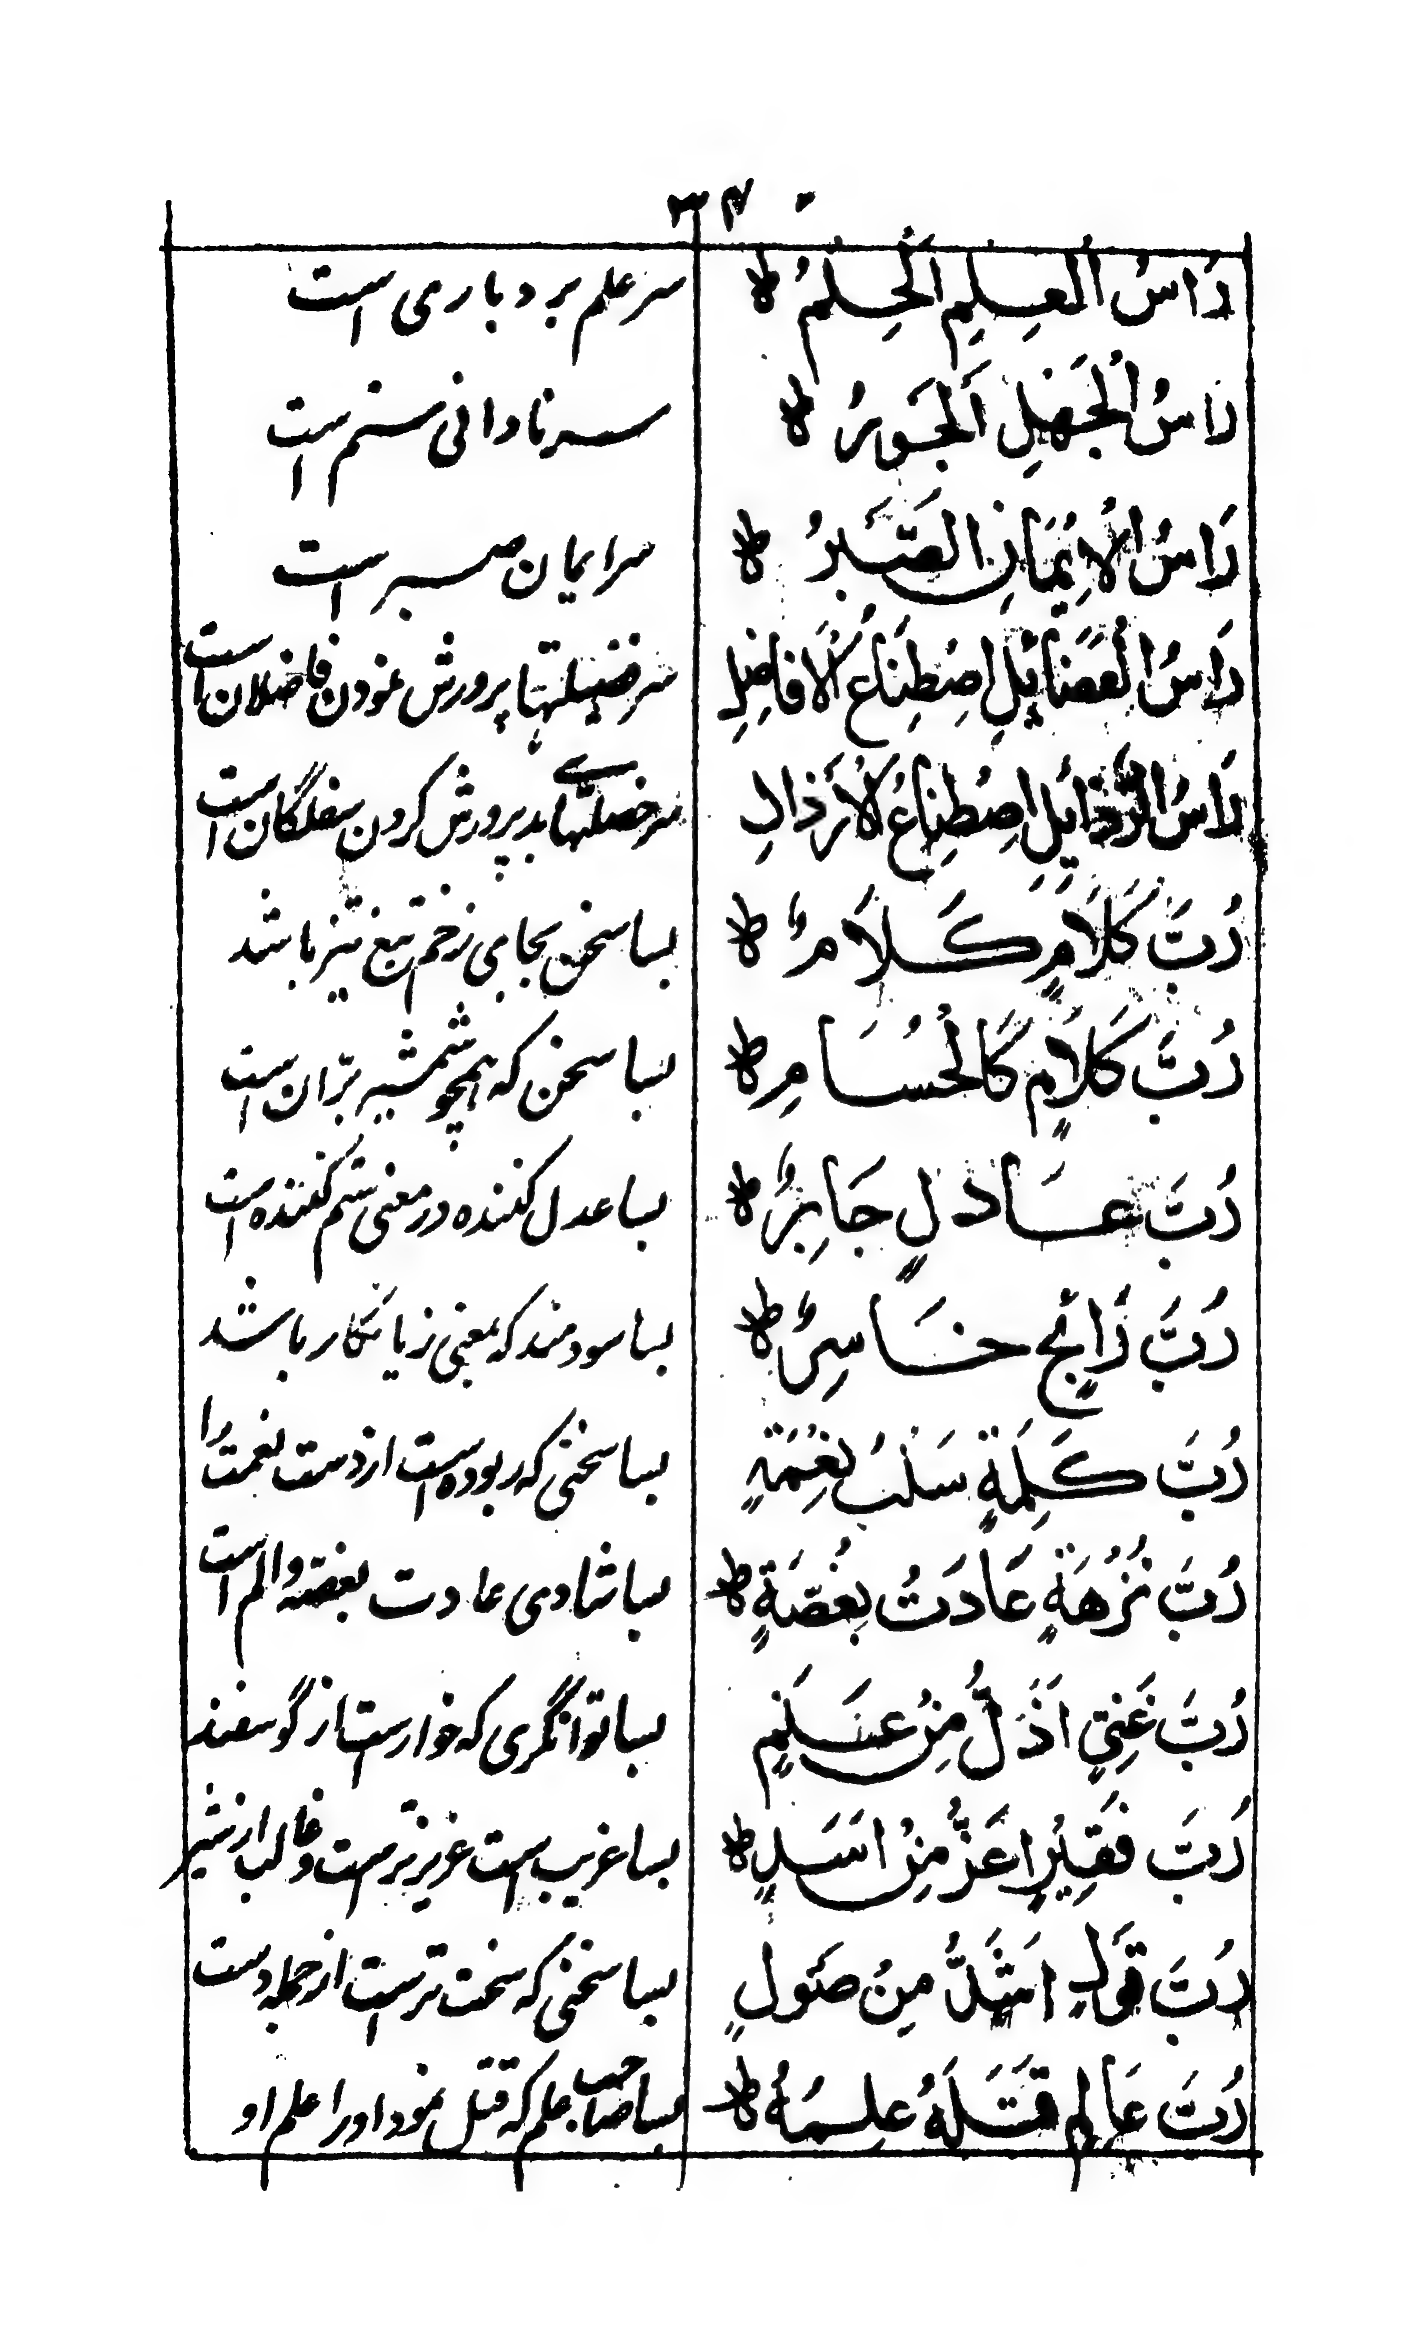 ۳۴
رَاسُ الْعِلِمِ الْحِلمُ ط سر علم بردباری است
رَاسُ الْجَهْلِ الْجَوْرُ ط سر نادانی ستم است
رَاسُ الْاِیْمَانِ الصَّبْرُ ط سر ایمان صبر است
رَاسُ الْفَضَایِلِ اصْطِنَاعُ الْاَفَاضِلِ سر فضیلتها پرورش نمودن فاضلان است
رَاسُ الرَّذَایِلِ اصْطِنَاعُ الْاَرْذَالِ سر خصلتهای بد پرورش کردن سفلگان است
رُبَّ كَلَامٍ كَلَامٌ ط بسا سخن بجای زخم تیغ تیز باشد
رُبَّ كَلَامٍ كَالْحُسَامِ ط بسا سخن که همچو شمشیر برّان است
رُبَّ عَادِلٍ جَایِرٌ ط بسا عدل کننده در معنی ستم کننده است
رُبَّ رَابِحٍ خَاسِرٌ ط بسا سودمند که بمعنی زیانکار باشد
رُبَّ كَلِمَةٍ سَلَبُ نِعْمَةٍ بسا سخنی که ربوده است از دست نعمت را
رُبَّ نُزْهَةٍ عَادَتْ بِغُصَّةٍ ط بسا شادی عادت بغصّه و الم است
رُبَّ غَنِیٍّ اَذَلُّ مِنْ غَنَمٍ بسا توانگری که خوارست از گوسفند
رُبَّ فَقِیْرٍ اَعَزُّ مِنْ اَسَدٍ ط بسا غریب است عزیزترست و غالب از شیر
رُبَّ قَوْلٍ اَشَدُّ مِنْ صَوْلٍ بسا سخنی که سخت ترست از حمله دست
رُبَّ عَالِمٍ قَتَلَهُ عِلْمُهُ ط بسا صاحب علم که قتل نمود او را علم او